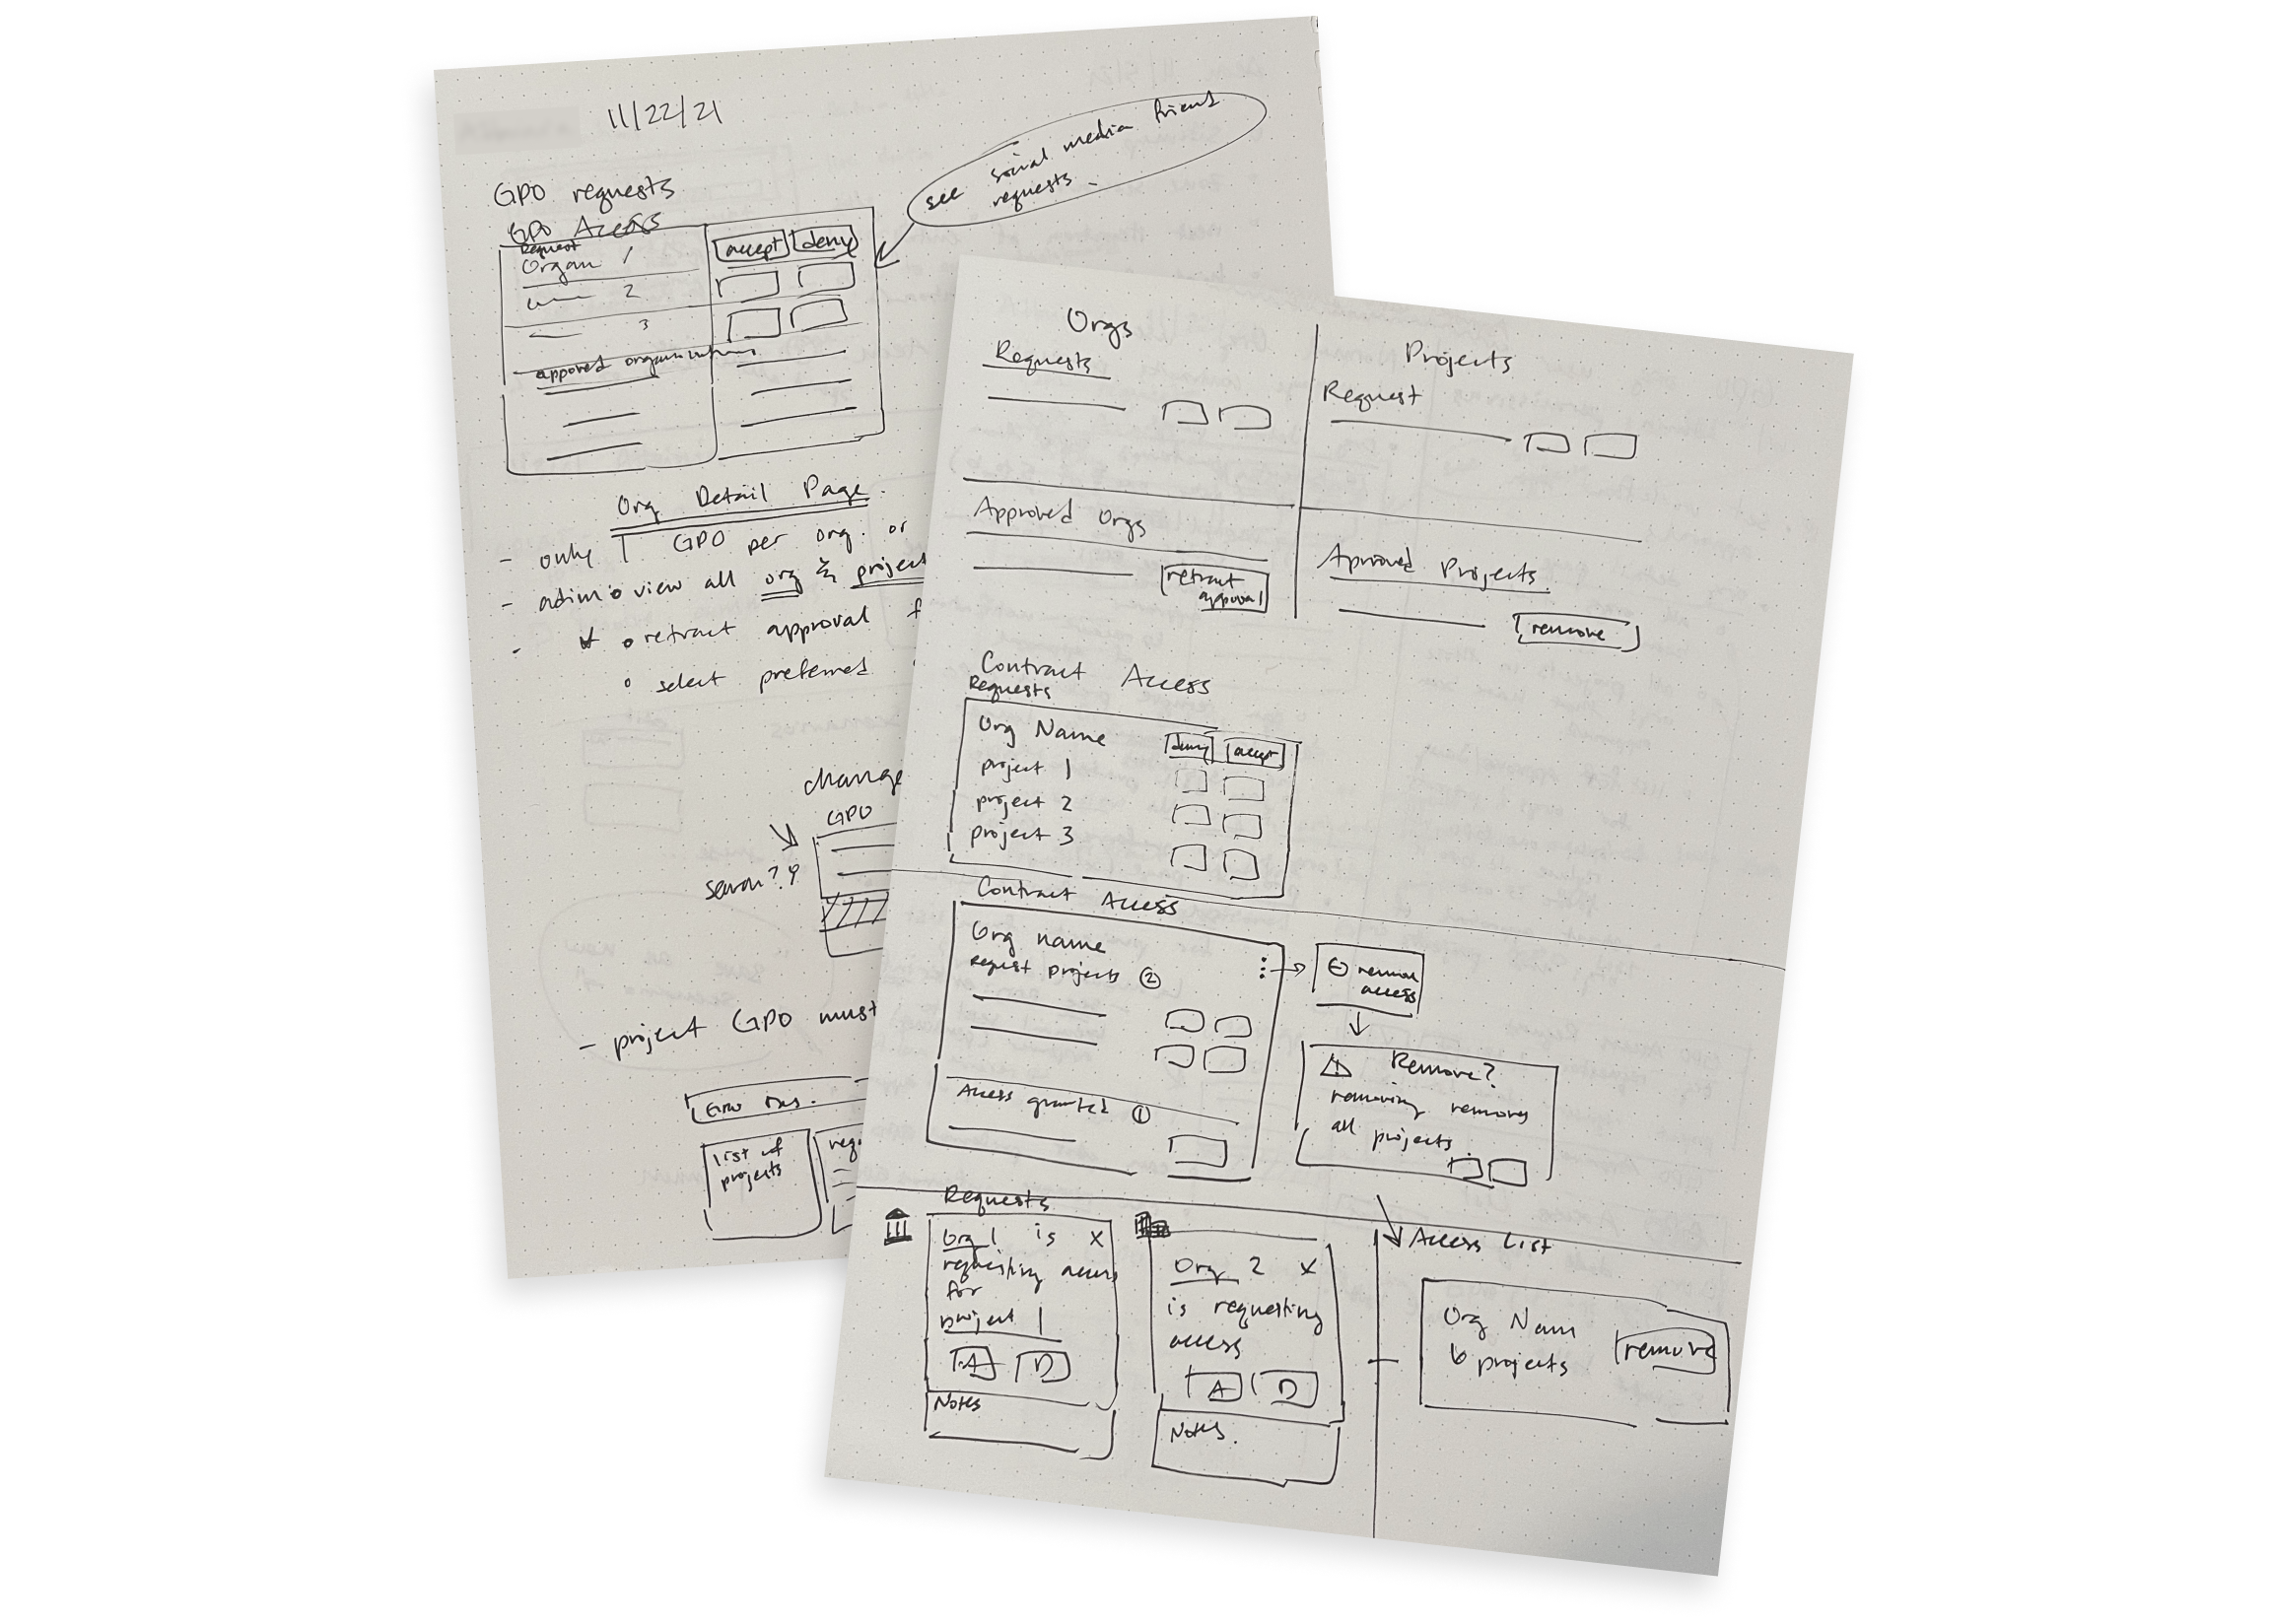 11/22/21
see social media friend
requests
GPO requests
GPO Access
Request
Organ 1
accept deny
2
3
approved organizations
Org Detail Page.
- only 1 GPO per org. or
- admin view all org & project
- retract approval f
select preferred
change
GPO
search?
- project GPO must
list of
projects
Orgs
Requests
Projects
Request
Approved Orgs
retract
approval
Aproved Projects.
remove
Contract Access
Requests
Org Name
deny accept
project 1
project 2
project 3
Contract Access
Org name
Request projects 2
remove
access
Remove?
removing removes
all projects
Access granted 1
Requests
Org 1 is X
requesting access
for
project 1
A D
Notes
Org 2 X
is requesting
access
A D
Notes.
Access List
Org Nam
6 projects
remove